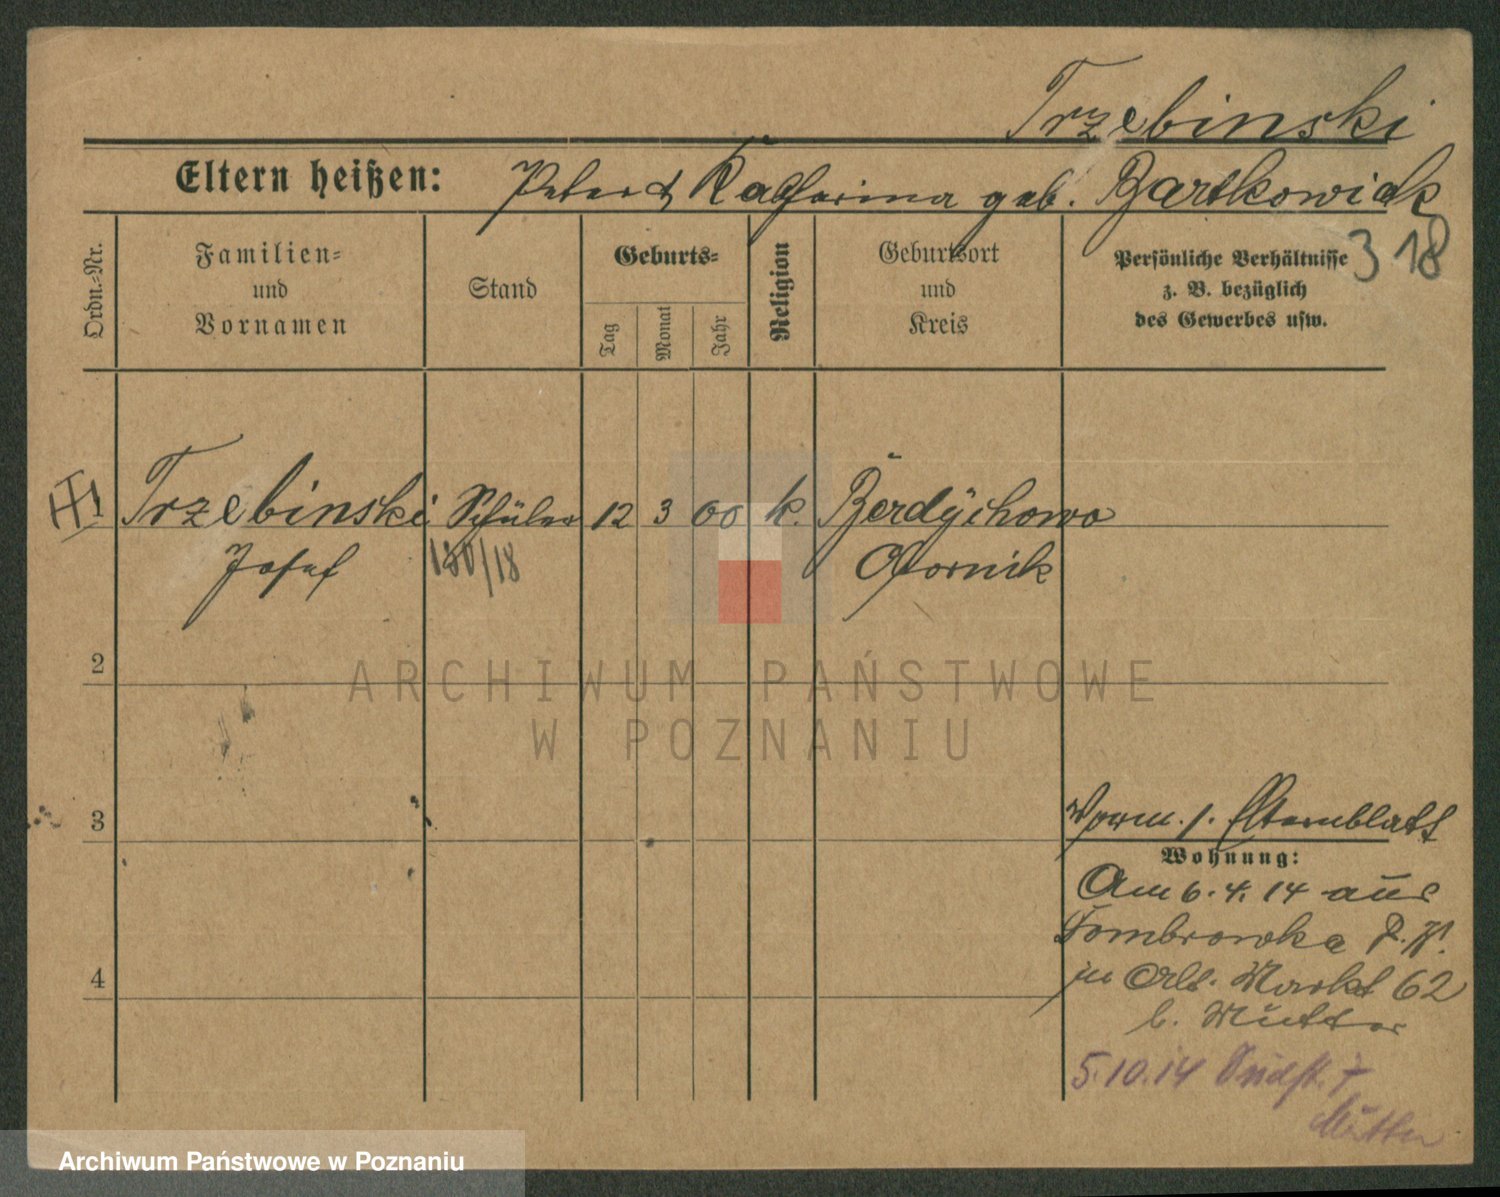 Trzebinski
Eltern heißen: Peter u. Katharina geb. Bartkowiak
3 18
Ordn.-Nr.
Familien-
und
Vornamen
Stand
Geburts-
Tag
Monat
Jahr
Religion
Geburtsort
und
Kreis
Persönliche Verhältnisse
z. B. bezüglich
des Gewerbes usw.
1 Trzebinski Schüler 12 3 00 k. Berdychowo
Josef 180/18 Obornik
2
3
Vorm. s. Elternblatt
Wohnung:
Am 6.4.14 aus
Dombrowka P. W.
in Alt. Markt 62
b. Mutter
4
5.10.14 Südstr. 7
Mutter
ARCHIWUM PAŃSTWOWE
W POZNANIU
Archiwum Państwowe w Poznaniu